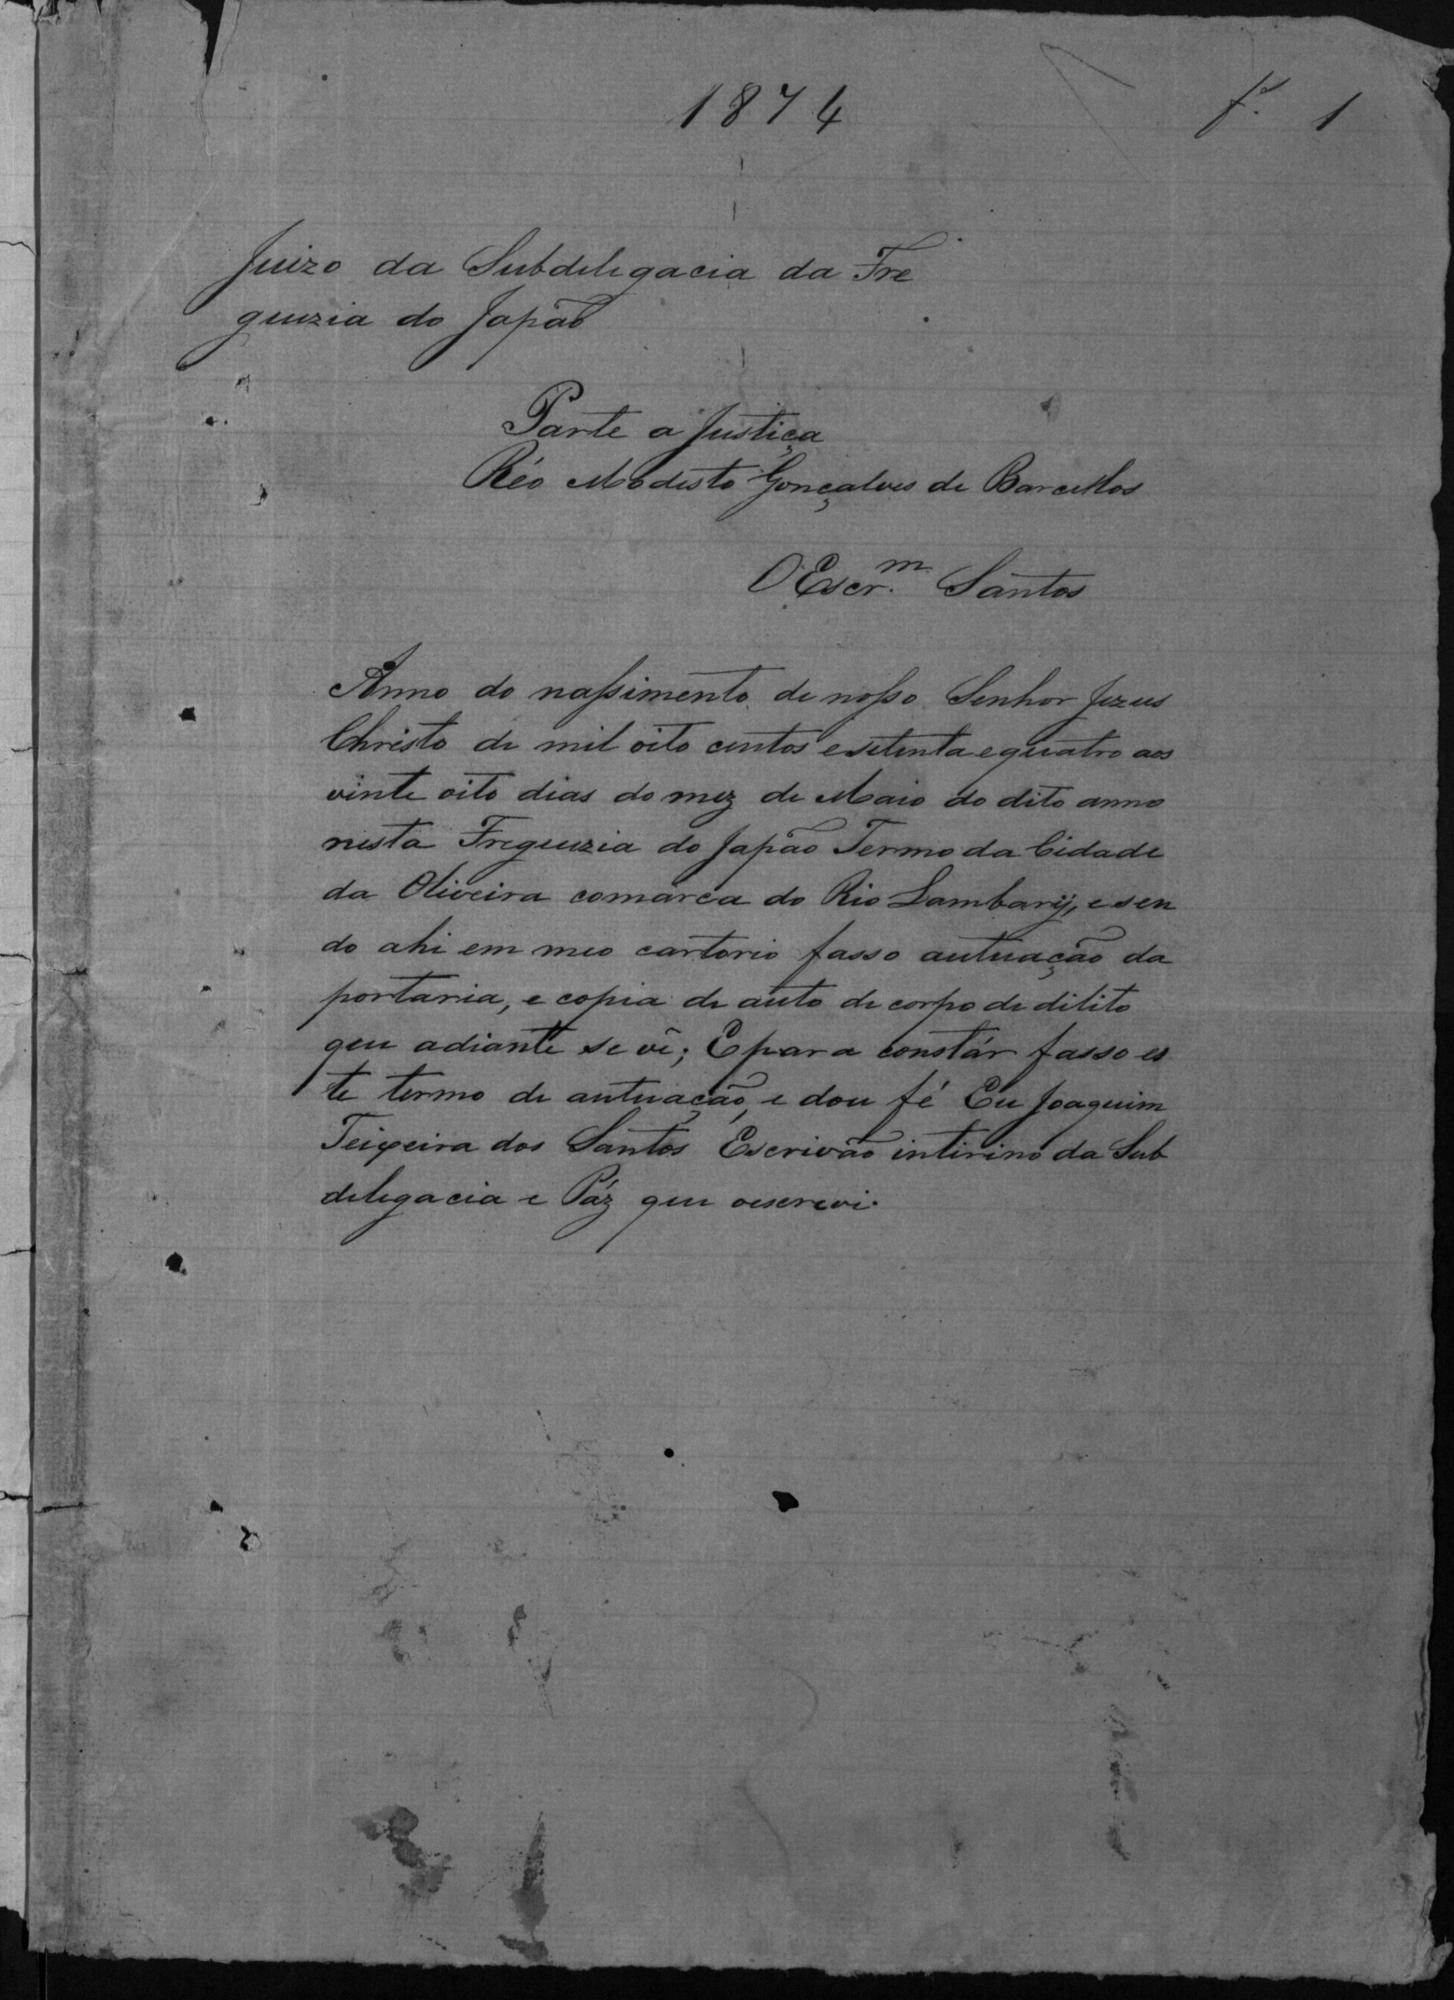 1874
f. 1
Juizo da Subdelegacia da Fre
guezia do Japão
Parte a Justiça
Réo Modesto Gonçalves de Barcellos
O Escr.m Santos
Anno do nassimento de nosso Senhor Jezus
Christo de mil oito centos e setenta e quatro aos
vinte oito dias do mez de Maio do dito anno
nesta Freguezia do Japão Termo da Cidade
da Oliveira comarca do Rio Lambarÿ, e sen
do ahi em meo cartorio fasso autuação da
portaria, e copia de auto de corpo de dilito
que adiante se vê; E para constár fasso es
te termo de autuação, e dou fé Eu Joaquim
Teixeira dos Santos Escrivão intirino da Sub
delegacia e Páz que oescrevi.